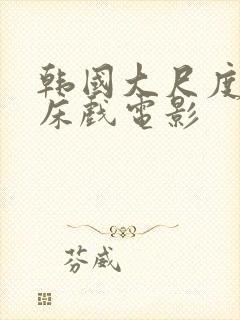 韩国大尺度
床戏电影
芬威